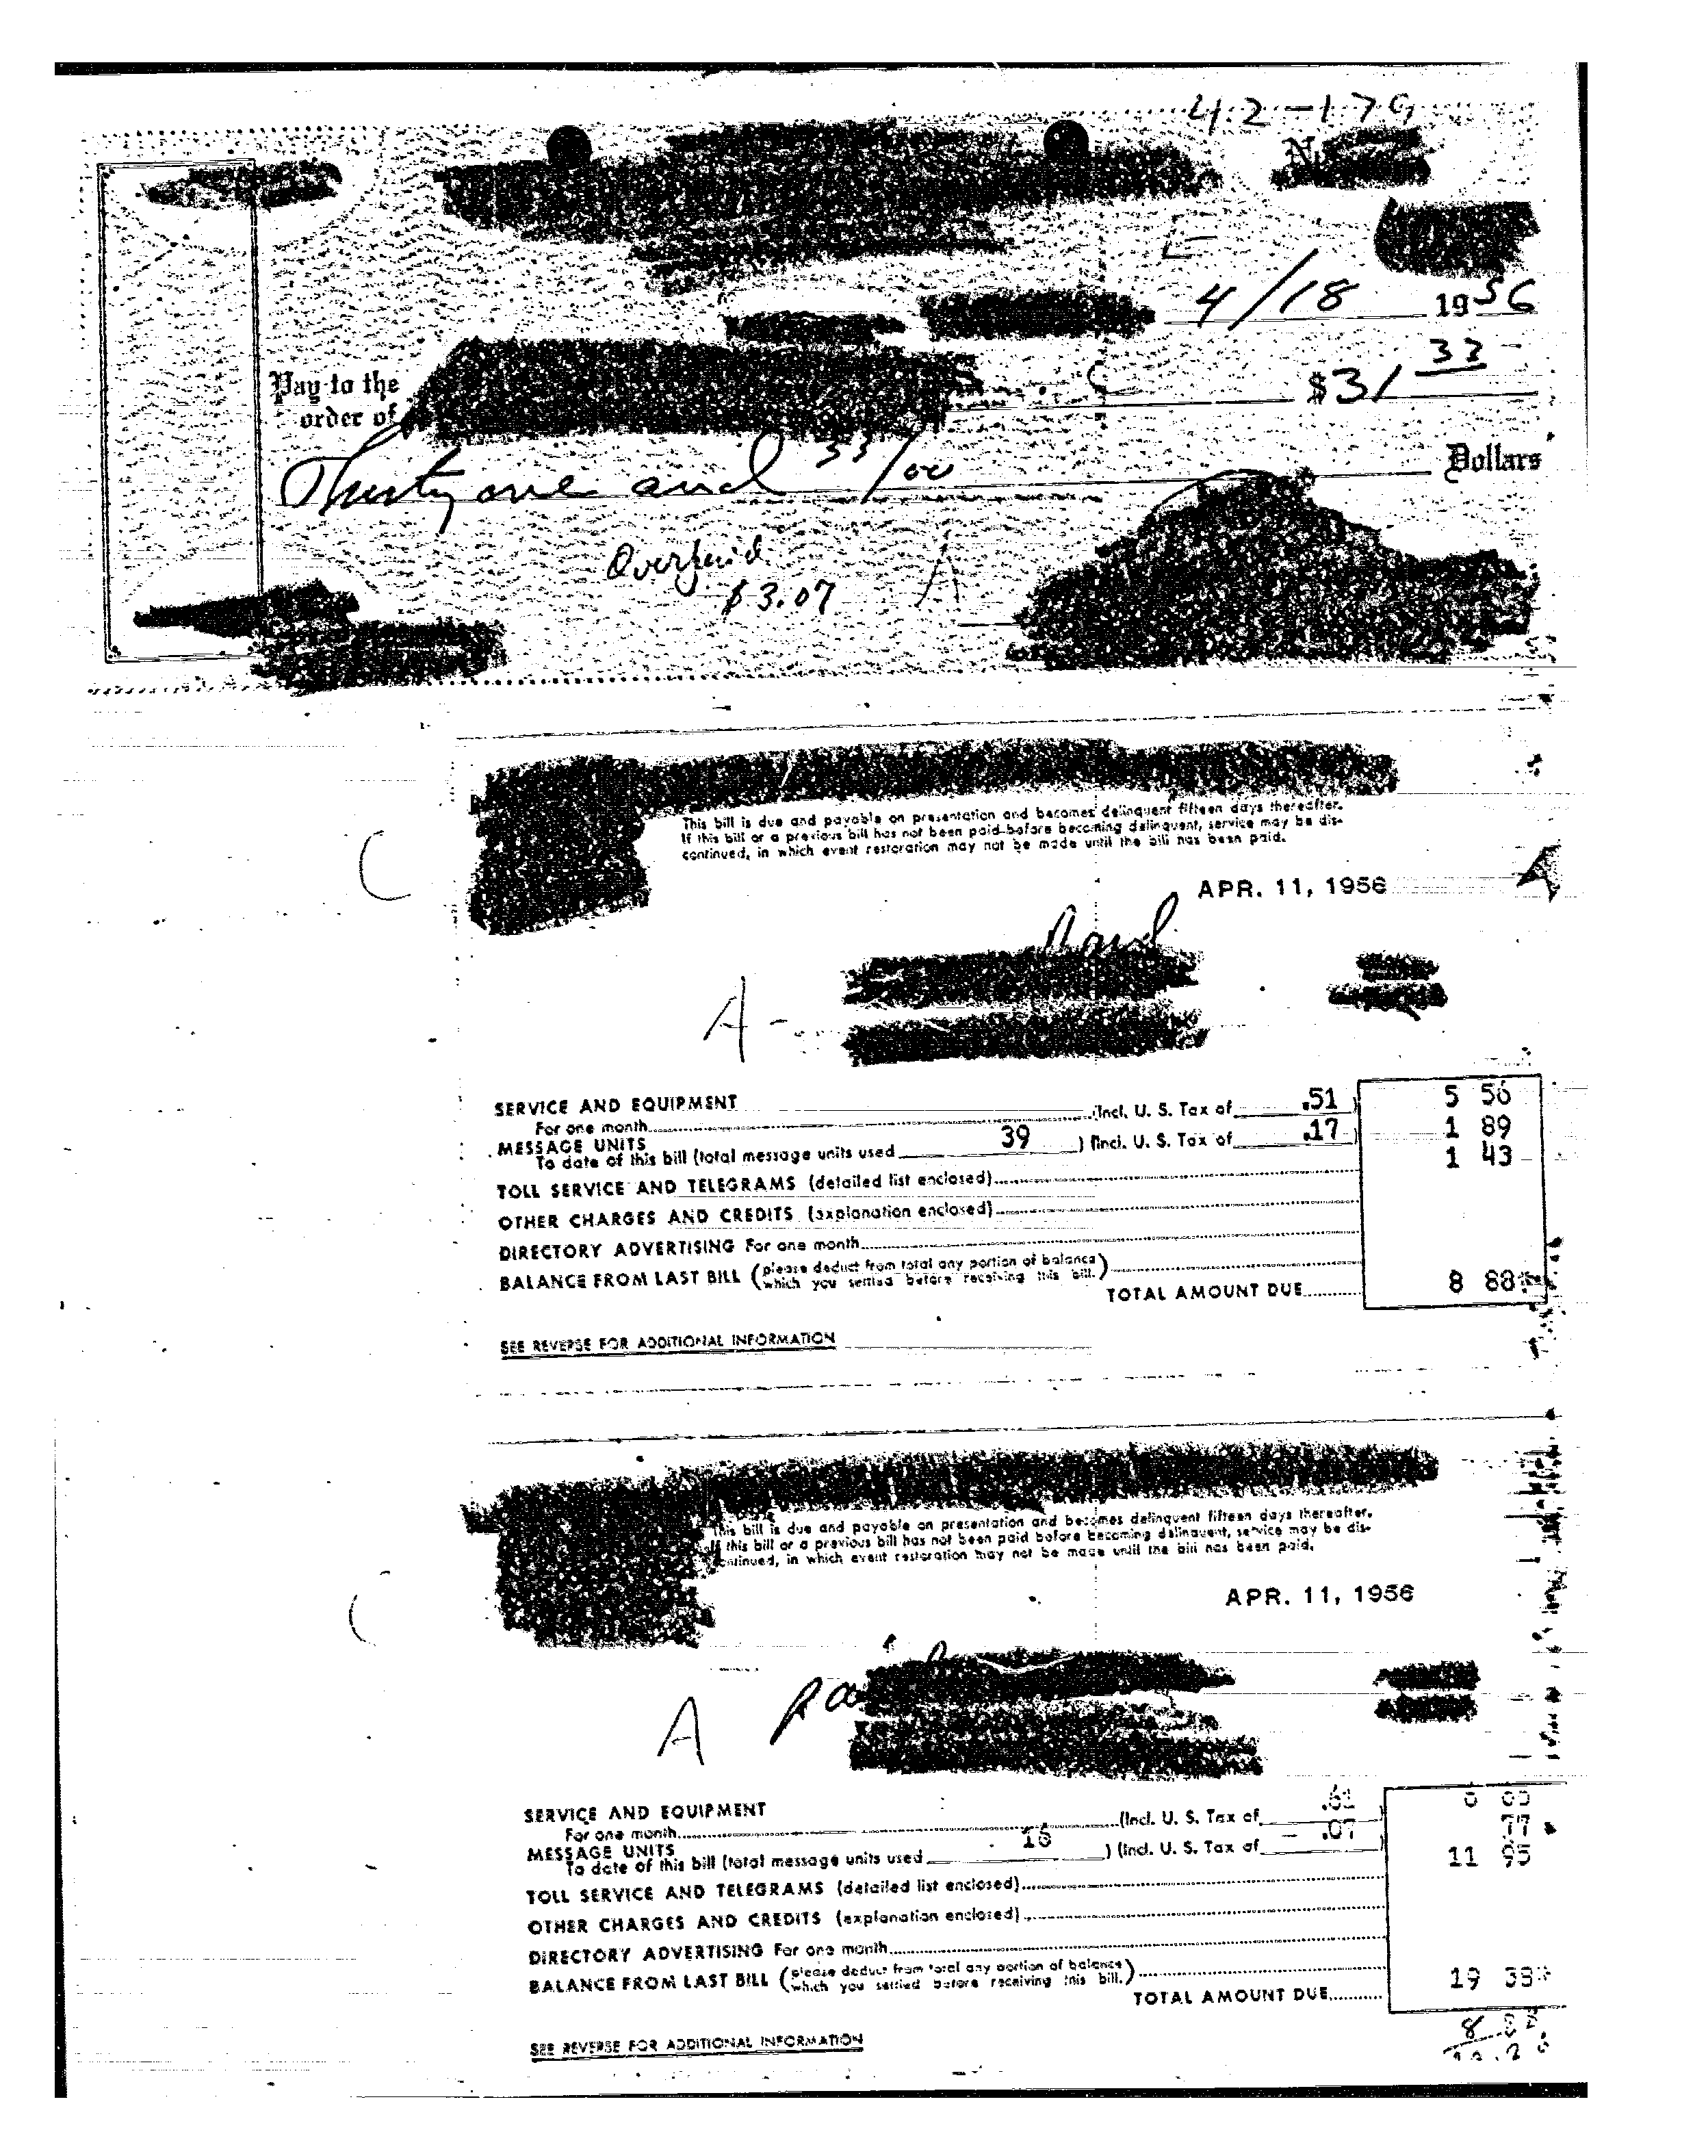 42-179
4/18 1956
Pay to the
order of
$31 33
Thirty one and 33/00 Dollars
Overpaid
$3.07
This bill is due and payable on presentation and becomes delinquent fifteen days thereafter.
If this bill or a previous bill has not been paid before becoming delinquent, service may be dis-
continued, in which event restoration may not be made until the bill has been paid.
APR. 11, 1956
A -
SERVICE AND EQUIPMENT
For one month (Incl. U. S. Tax of .51 ) 5 56
MESSAGE UNITS
To date of this bill (total message units used 39 ) (Incl. U. S. Tax of .17 ) 1 89
1 43
TOLL SERVICE AND TELEGRAMS (detailed list enclosed)
OTHER CHARGES AND CREDITS (explanation enclosed)
DIRECTORY ADVERTISING For one month
BALANCE FROM LAST BILL (please deduct from total any portion of balance
which you settled before receiving this bill.)
TOTAL AMOUNT DUE 8 88
SEE REVERSE FOR ADDITIONAL INFORMATION
This bill is due and payable on presentation and becomes delinquent fifteen days thereafter.
If this bill or a previous bill has not been paid before becoming delinquent, service may be dis-
continued, in which event restoration may not be made until the bill has been paid.
APR. 11, 1956
A
SERVICE AND EQUIPMENT
For one month (Incl. U. S. Tax of .61 )
77
MESSAGE UNITS
To date of this bill (total message units used 16 ) (Incl. U. S. Tax of .07 )
11 95
TOLL SERVICE AND TELEGRAMS (detailed list enclosed)
OTHER CHARGES AND CREDITS (explanation enclosed)
DIRECTORY ADVERTISING For one month
BALANCE FROM LAST BILL (please deduct from total any portion of balance
which you settled before receiving this bill.)
TOTAL AMOUNT DUE 19 38
SEE REVERSE FOR ADDITIONAL INFORMATION